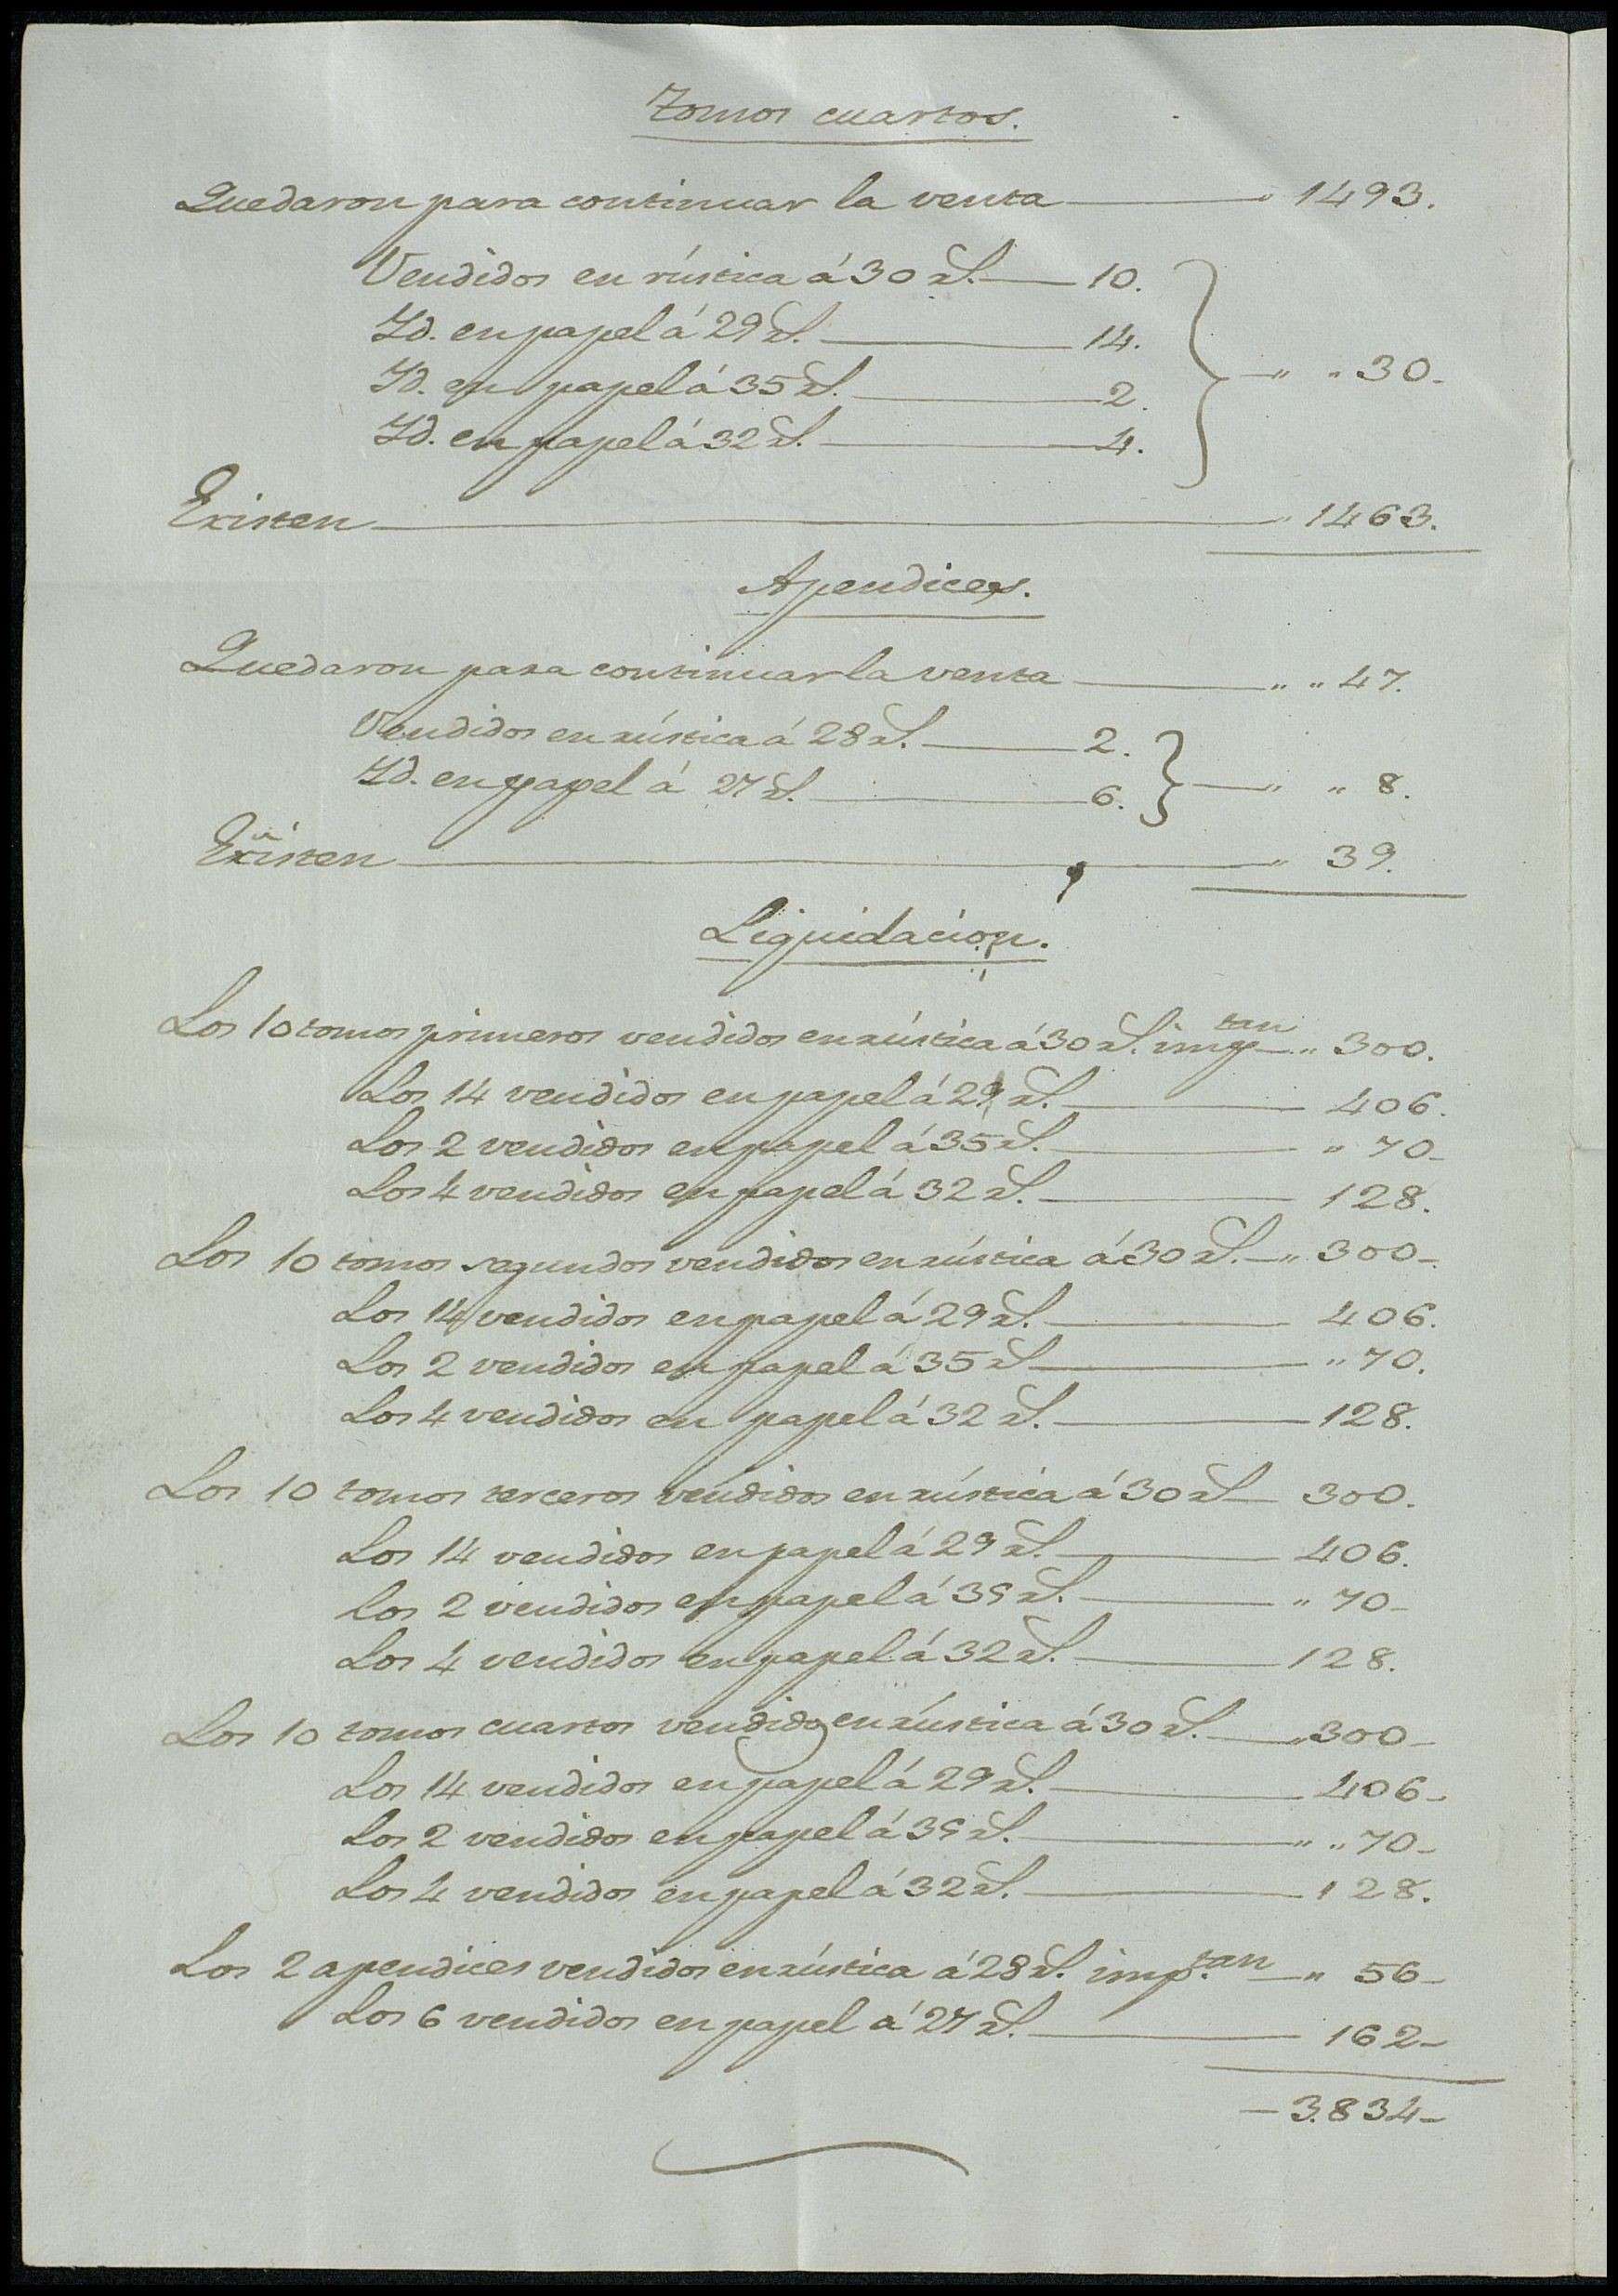 Tomos cuartos.
Quedaron para continuar la venta — " 1493.
Vendidos en rústica á 30 rs. — 10.
Yd. en papel á 29 rs. — 14.
Yd. en papel á 35 rs. — 2.
Yd. en papel á 32 rs. — 4.
} — " " 30-
Existen — " 1463.
Apendices.
Quedaron para continuar la venta — " " 47.
Vendidos en rústica á 28 rs. — 2.
Yd. en papel á 27 rs. — 6.
} — " " 8.
Existen — " 39.
Liquidacion.
Los 10 tomos primeros vendidos en rústica á 30 rs. imptan — " 300.
Los 14 vendidos en papel á 29 rs. — 406.
Los 2 vendidos en papel á 35 rs. — " 70-
Los 4 vendidos en papel á 32 rs. — 128.
Los 10 tomos segundos vendidos en rústica á 30 rs. — " 300-
Los 14 vendidos en papel á 29 rs. — 406.
Los 2 vendidos en papel á 35 rs — " 70.
Los 4 vendidos en papel á 32 rs. — 128.
Los 10 tomos terceros vendidos en rústica á 30 rs — 300.
Los 14 vendidos en papel á 29 rs. — 406.
Los 2 vendidos en papel á 35 rs. — " 70-
Los 4 vendidos en papel á 32 rs. — 128.
Los 10 tomos cuartos vendidos en rústica á 30 rs. — " 300-
Los 14 vendidos en papel á 29 rs. — 406-
Los 2 vendidos en papel á 35 rs. — " " 70-
Los 4 vendidos en papel á 32 rs. — 128.
Los 2 apendices vendidos en rústica á 28 rs. imp.tan — " 56-
Los 6 vendidos en papel á 27 rs. — 162-
— 3.834-